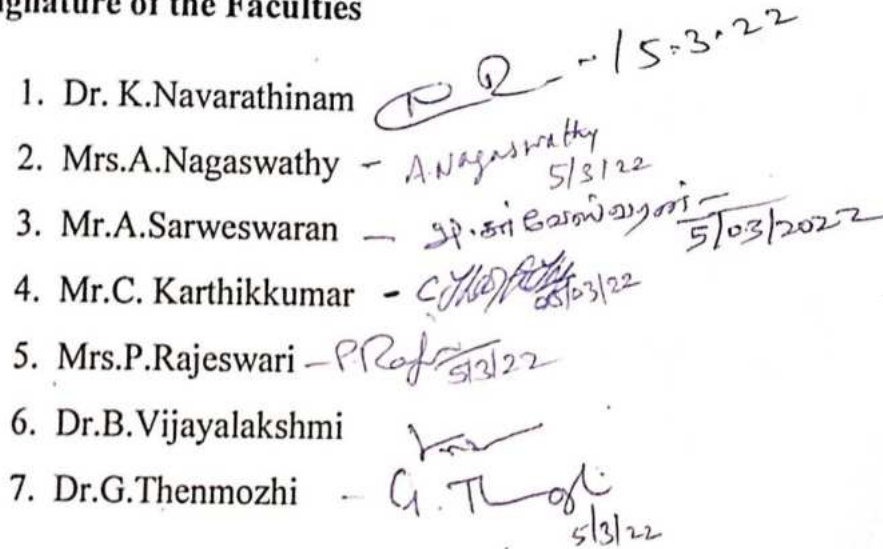 Signature of the Faculties
1. Dr. K.Navarathinam - 15.3.22
2. Mrs.A.Nagaswathy - A.Nagaswathy
5/3/22
3. Mr.A.Sarweswaran - அ.சர்வேஸ்வரன் -
5/03/2022
4. Mr.C. Karthikkumar -
05/03/22
5. Mrs.P.Rajeswari -
5/3/22
6. Dr.B.Vijayalakshmi
7. Dr.G.Thenmozhi -
5/3/22